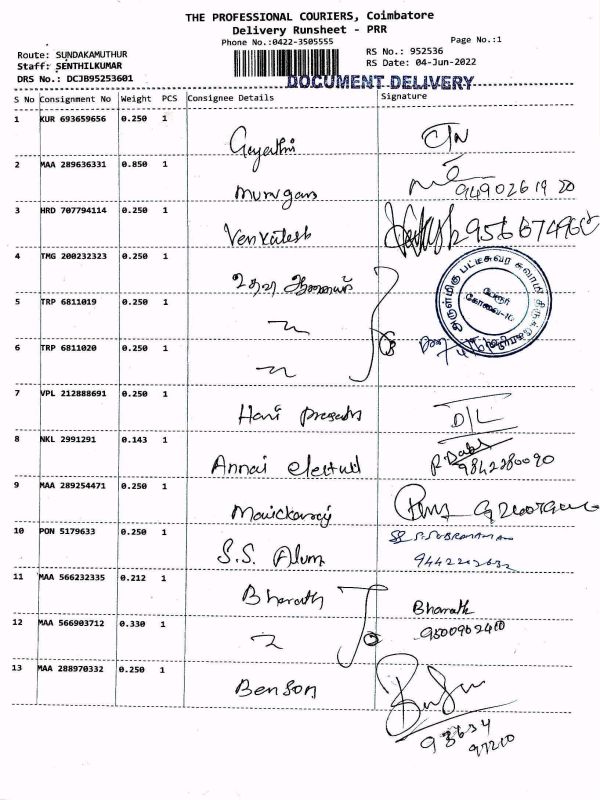 THE PROFESSIONAL COURIERS, Coimbatore
Delivery Runsheet - PRR
Phone No.:0422-3505555
Page No.:1
Route: SUNDAKAMUTHUR
Staff: SENTHILKUMAR
DRS No.: DCJB95253601
RS No.: 952536
RS Date: 04-Jun-2022
DOCUMENT DELIVERY
S No Consignment No Weight PCS Consignee Details Signature
1 KUR 693659656 0.250 1 Gayathri
2 MAA 289636331 0.850 1 Murugan
9490261920
3 HRD 707794114 0.250 1 Venkatesh
4 TMG 200232323 0.250 1 உதவி ஆணையர்
அருள்மிகு பட்டீசுவர சுவாமி
பேரூர்
கோவை-10
5 TRP 6811019 0.250 1
6 TRP 6811020 0.250 1
7 VPL 212888691 0.250 1 Hari Prasath
D/L
8 NKL 2991291 0.143 1 Annai
9842380090
9 MAA 289254471 0.250 1
10 PON 5179633 0.250 1 S.S. Alum
S. SUBRAMANIAN
11 MAA 566232335 0.212 1 Bharath
Bharath
9500902410
12 MAA 566903712 0.330 1
13 MAA 288970332 0.250 1 Benson